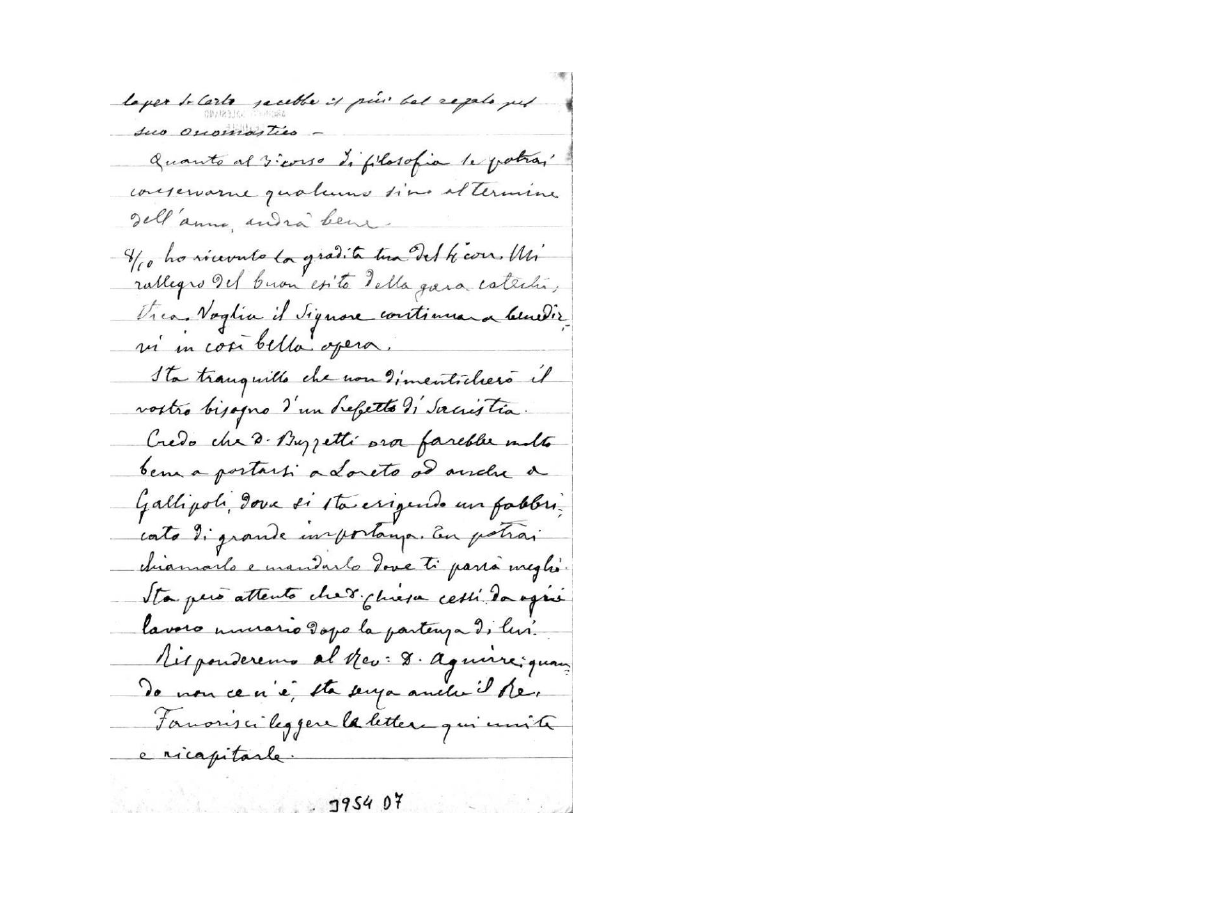 saper di certo sarebbe il più bel regalo pel
suo onomastico –
Quanto al 3° corso di filosofia se potrai
conservarne qualcuno sino al termine
dell'anno, andrà bene.
8/10 ho ricevuto la gradita tua del 4 corr. Mi
rallegro del buon esito della gara catechi-
stica. Voglia il Signore continuar a benedir-
vi in così bella opera.
Sta tranquillo che non dimenticherò il
vostro bisogno d'un Prefetto di Sacristia.
Credo che D. Buzzetti ora farebbe molto
bene a portarsi a Loreto od anche a
Gallipoli, dove si sta erigendo un fabbri-
cato di grande importanza. Tu potrai
chiamarlo e mandarlo dove ti parrà meglio.
Sta però attento che D. Chiesa cessi da ogni
lavoro murario dopo la partenza di lui.
Risponderemo al Rev: D. Aguirre; quan-
do non ce n'è, sta senza anche il Re.
Favorisci leggere le lettere qui unite
e ricapitarle.
3954 D7